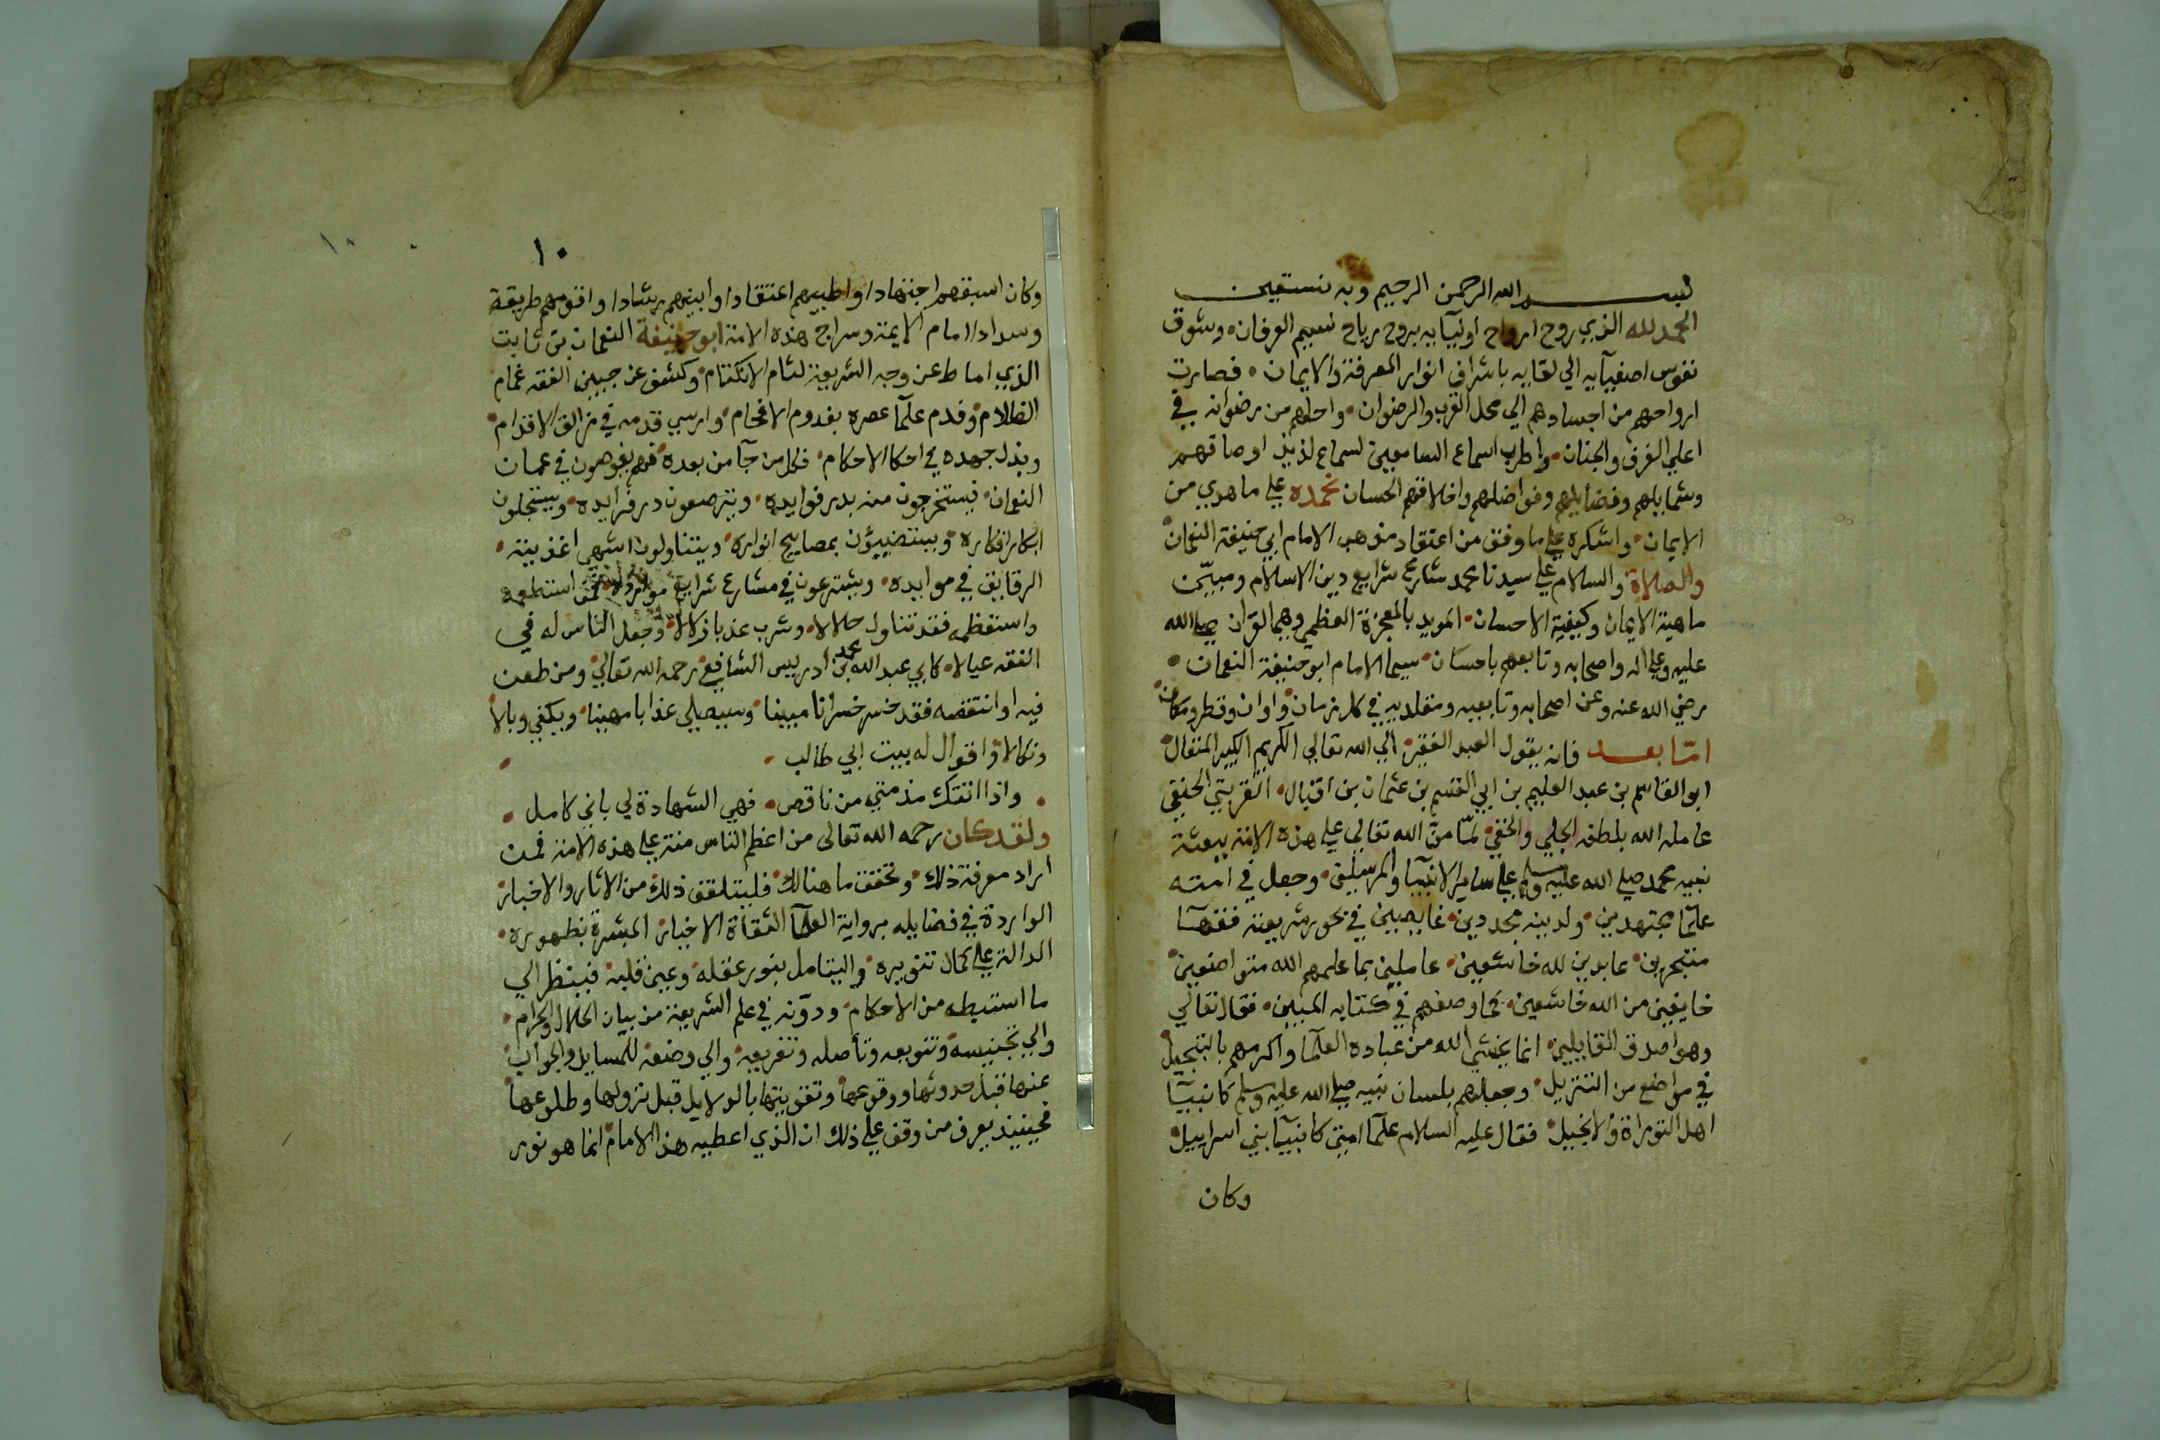 بسم الله الرحمن الرحيم وبه نستعين
الحمد لله الذي روح ارواح اوليآيه بروح رياح نسيم العرفان وشوق
نفوس اصفيآيه الي لقايه باشراق انوار المعرفة والايمان فصارت
ارواحهم من اجسادهم الي محل القرب والرضوان واحلهم من رضوانه في
اعلي الغرف والجنان واطرب اسماع السامعين لسماع لذيذ اوصافهم
وشمايلهم وفضايلهم وفواضلهم واخلاقهم الحسان نحمده علي ما هدي من
الايمان واشكره علي ما وفق من اعتقاد مذهب الامام ابي حنيفة النعمان
والصلاة والسلام علي سيدنا محمد شارع شرايع دين الاسلام ومبيّن
ماهية الايمان وكيفية الاحسان المويد بالمعجزة العظمي وهي القران صلي الله
عليه وعلي اله واصحابه وتابعهم باحسان سيما الامام ابو حنيفة النعمان
رضي الله عنه وعن اصحابه وتابعيه ومقلديه في كل زمان واوان وقطر ومكان
امّا بعد فانه يقول العبد الفقير الي الله تعالي الكريم الكبير المتعال
ابو القاسم بن عبد العليم بن ابي القسم بن عثمان بن اقبال القربتي الحنفي
عامله الله بلطفه الجلي والخفي لمّا منّ الله تعالي علي هذه الامة ببعثة
نبيه محمد صلي الله عليه وسلم علي ساير الانبيآ والمرسلين وجعل في امته
علمآ مجتهدين ولدينه مجددين غايصين في بحور شريعته فقهآ
متبحرين عابدين لله خاشعين عاملين بما علمهم الله متواضعين
خايفين من الله خاشعين كما وصفهم في كتابه المبين فقال تعالي
وهو اصدق القايلين انما يخشي الله من عباده العلمآ واكرمهم بالتبجيل
في مواضع من التنزيل وجعلهم بلسان نبيه صلي الله عليه وسلم كانبيآ
اهل التوراة والانجيل فقال عليه السلام علمآ امتي كانبيآ بني اسراييل
وكان
١٠
١٠
وكان اسبقهم اجتهادا واطيبهم اعتقادا وابينهم رشادا واقومهم طريقة
وسدادا امام الايمة وسراج هذه الامة ابو حنيفة النعمان بن ثابت
الذي اماط عن وجه الشريعة لثام الاكتتام وكشف عن جبين الفقه غمام
الظلام وفدم علمآ عصره بفدوم الافحام وارسي قدمه في مزالق الاقدام
وبذل جهده في احكا الاحكام فكل من جآ من بعده فهم يغوصون في عمان
النعمان فيستخرجون منه بدر فوايده ويترصعون درر فرايده ويستجلون
ابكار افكاره ويستضيؤن بمصابيح انواره ويتناولون اشهي اغذيته
الرقايق في موايده ويشترعون في مشارع شرايع موارده فمن استطعمه
واستعظمه فقد تناول حلالا وشرب عذبا زلالا وجعل الناس له في
الفقه عيالا كابي عبد الله محمد بن ادريس الشافعي رحمه الله تعالي ومن طعن
فيه او انتقصه فقد خسر خسرانا مبينا وسيصلي عذابا مهينا ويكفي وبالا
ونكالا واقوال له بيت ابي طالب
واذا اتتك مذمتي من ناقص فهي الشهادة لي باني كامل
ولقد كان رحمه الله تعالى من اعظم الناس منة علي هذه الامة فمن
اراد معرفة ذلك وتحقق ما هنالك فليتلقف ذلك من الاثار والاخبار
الواردة في فضايله برواية العلمآ الثقاة الاخيار المبشرة بظهوره
الدالة علي كمال تنويره واليتامل بنور عقله وعين قلبه فينظر الي
ما استنبطه من الاحكام ودوّنه في علم الشريعة من بيان الحلال والحرام
والي تجنيسه وتنويعه وتأصله وتفريعه والي وضعه للمسايل والجواب
عنها قبل حدوثها ووقوعها وتقويتها بالدلايل قبل نزولها وطلوعها
فحينيذ يعرف من وقف علي ذلك ان الذي اعطيه هذا الامام انما هو نور